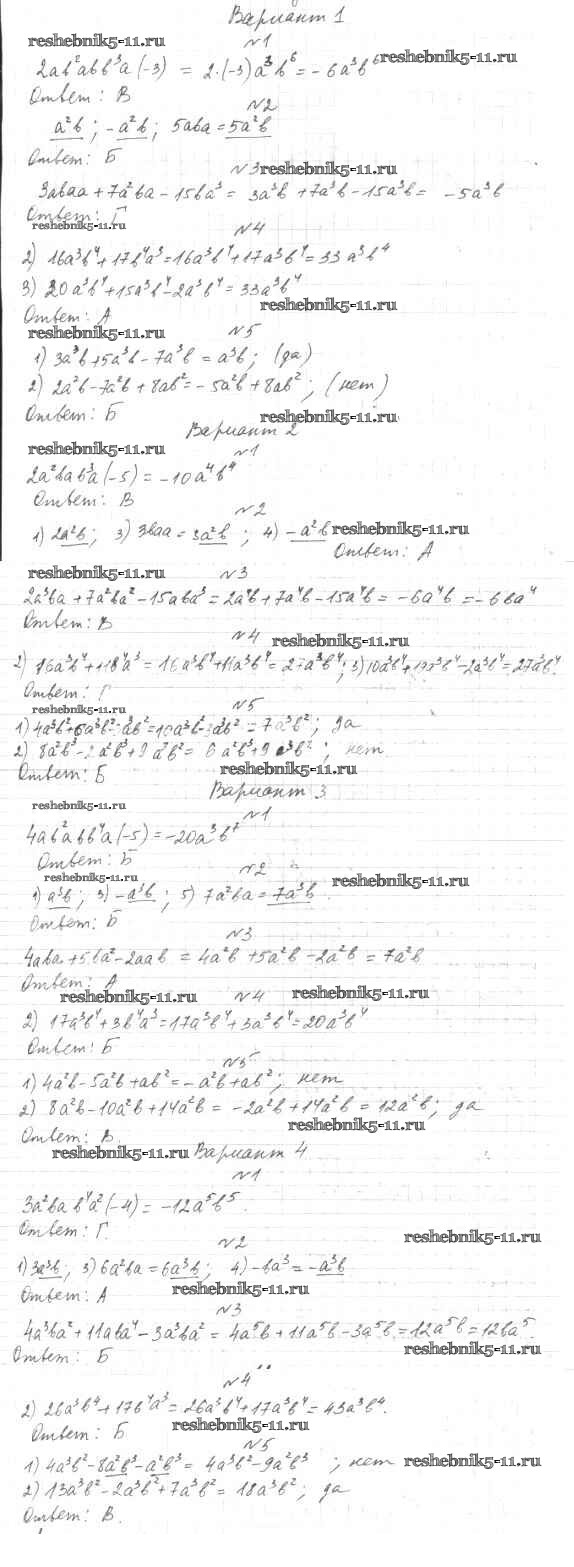 Вариант 1
reshebnik5-11.ru
№1
reshebnik5-11.ru
2ab²abb³a(-3) = 2·(-3)a³b⁶ = -6a³b⁶
Ответ: В
№2
a²b; -a²b; 5aba = 5a²b
Ответ: Б
№3
reshebnik5-11.ru
3abaa + 7a²ba - 15ba³ = 3a³b + 7a³b - 15a³b = -5a³b
Ответ: Г
reshebnik5-11.ru
№4
2) 16a³b⁴ + 17b⁴a³ = 16a³b⁴ + 17a³b⁴ = 33a³b⁴
3) 20a³b⁴ + 15a³b⁴ - 2a³b⁴ = 33a³b⁴
reshebnik5-11.ru
Ответ: А
reshebnik5-11.ru
№5
1) 3a³b + 5a³b - 7a³b = a³b; (да)
2) 2a²b - 7a²b + 8ab² = -5a²b + 8ab²; (нет)
Ответ: Б
reshebnik5-11.ru
Вариант 2
reshebnik5-11.ru
№1
2a²bab³a(-5) = -10a⁴b⁴
Ответ: В
№2
1) 2a²b; 3) 3baa = 3a²b; 4) -a²b
reshebnik5-11.ru
Ответ: А
reshebnik5-11.ru
№3
2a³ba + 7a²ba² - 15aba³ = 2a⁴b + 7a⁴b - 15a⁴b = -6a⁴b = -6ba⁴
Ответ: В
№4
reshebnik5-11.ru
2) 16a³b⁴ + 11b⁴a³ = 16a³b⁴ + 11a³b⁴ = 27a³b⁴; 3) 10a³b⁴ + 19a³b⁴ - 2a³b⁴ = 27a³b⁴.
Ответ: Г
reshebnik5-11.ru
№5
1) 4a³b² + 6a³b² - 3a³b² = 10a³b² - 3a³b² = 7a³b²; да
2) 8a²b³ - 2a²b³ + 9a³b² = 6a²b³ + 9a³b²; нет
Ответ: Б
reshebnik5-11.ru
Вариант 3
reshebnik5-11.ru
№1
4ab²abb⁴a(-5) = -20a³b⁷
Ответ: Б
reshebnik5-11.ru
№2
reshebnik5-11.ru
1) a³b; 3) -a³b; 5) 7a²ba = 7a³b.
Ответ: Б
№3
4aba + 5ba² - 2aab = 4a²b + 5a²b - 2a²b = 7a²b
Ответ: А
reshebnik5-11.ru
№4
reshebnik5-11.ru
2) 17a³b⁴ + 3b⁴a³ = 17a³b⁴ + 3a³b⁴ = 20a³b⁴
Ответ: Б
№5
1) 4a²b - 5a²b + ab² = -a²b + ab²; нет
2) 8a²b - 10a²b + 14a²b = -2a²b + 14a²b = 12a²b; да
reshebnik5-11.ru
Ответ: В.
reshebnik5-11.ru
Вариант 4
№1
3a²bab⁴a²(-4) = -12a⁵b⁵.
Ответ: Г.
reshebnik5-11.ru
№2
1) 3a³b; 3) 6a²ba = 6a³b; 4) -ba³ = -a³b
reshebnik5-11.ru
Ответ: А
№3
4a³ba² + 11aba⁴ - 3a³ba² = 4a⁵b + 11a⁵b - 3a⁵b = 12a⁵b = 12ba⁵.
reshebnik5-11.ru
Ответ: Б
№4
2) 26a³b⁴ + 17b⁴a³ = 26a³b⁴ + 17a³b⁴ = 43a³b⁴.
reshebnik5-11.ru
Ответ: Б
№5
1) 4a³b² - 8a²b³ - a²b³ = 4a³b² - 9a²b³; нет
reshebnik5-11.ru
2) 13a³b² - 2a³b² + 7a³b² = 18a³b²; да
Ответ: В.